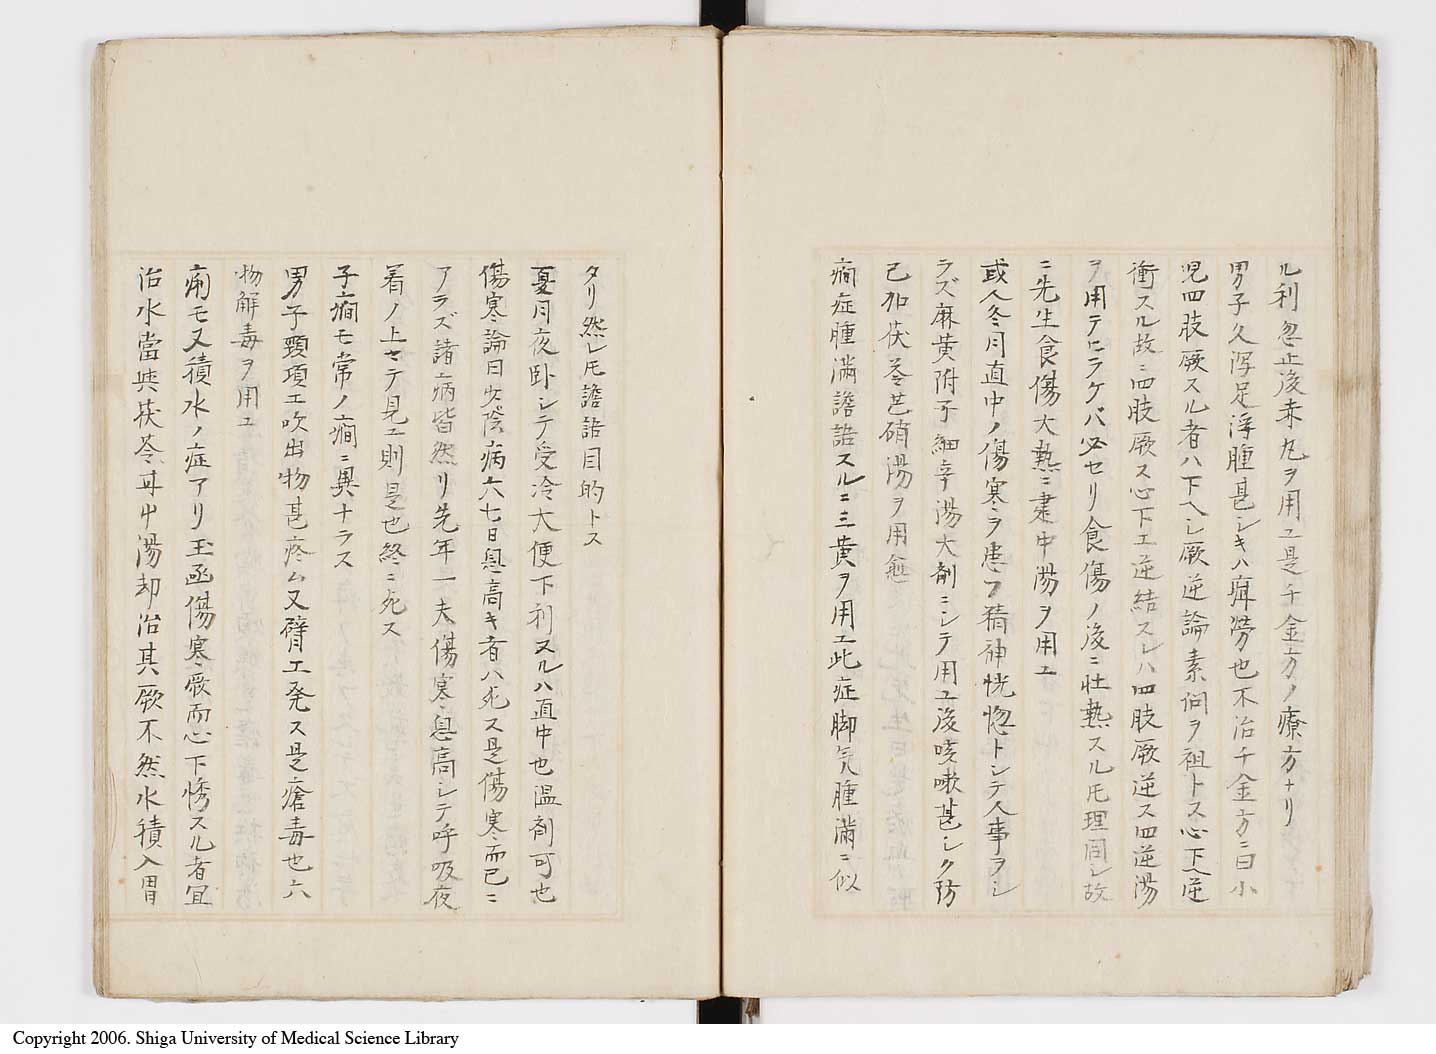 ル利忽止後赤丸ヲ用ユ是千金方ノ療方ナリ
男子久瀉足浮腫甚シキハ疳労也不治千金方ニ曰小
児四肢厥スル者ハ下ヘシ厥逆論素問ヲ祖トス心下ヘ逆
衝スル故ニ四肢厥ス心下エ逆結スレハ四肢厥逆ス四逆湯
ヲ用テヒラケバ必セリ食傷ノ後ニ壮熱スル𪜈理同シ故
ニ先生食傷大熱ニ建中湯ヲ用ユ
或人冬月直中ノ傷寒ヲ患フ精神恍惚トシテ人事ヲシ
ラズ麻黄附子細辛湯大剤ニシテ用ユ後咳嗽甚シク防
己加茯苓芒硝湯ヲ用愈
癇症腫満譫語スルニ三黄ヲ用エ此症脚気腫満ニ似
タリ然レ𪜈譫語目的トス
夏月夜卧シテ受冷大便下利スルハ直中也温剤可也
傷寒論曰少陰病六七日息高キ者ハ死ス是傷寒而已ニ
アラズ諸病皆然リ先年一夫傷寒息高シテ呼吸夜
着ノ上ヨテ見ユ則是也終ニ死ス
子癇モ常ノ癇ニ異ナラス
男子頸項エ吹出物甚疼ム又臂エ発ス是瘡毒也六
物解毒ヲ用ユ
痢モ又積水ノ症アリ玉函傷寒厥而心下悸スル者宜
治水當與茯苓甘中湯却治其厥不然水積入胃
Copyright 2006. Shiga University of Medical Science Library